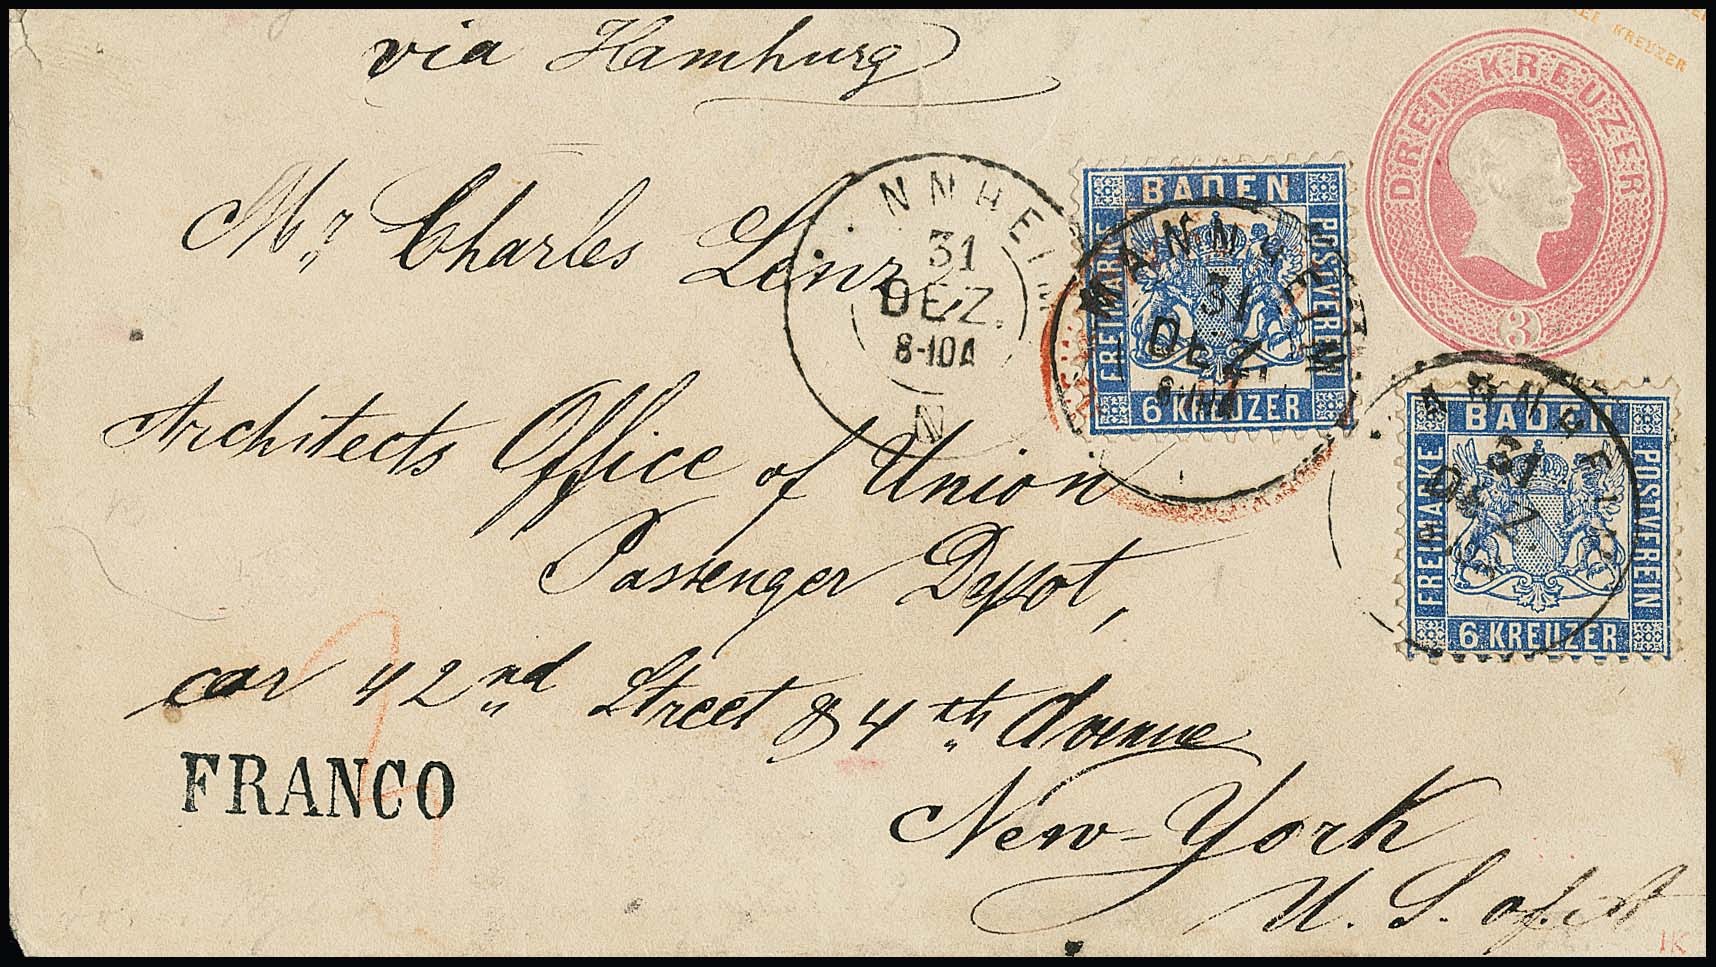 via Hamburg
KREUZER
DREI KREUZER
3
Mr. Charles Lenz,
Architects Office of Union
Passenger Depot,
cor 42nd Street & 4th Avenue
New-York
U. S. of A
FRANCO
NNHEIM
31
DEZ.
8-10A
N
BADEN
FREIMARKE
POSTVEREIN
6 KREUZER
MANNHEIM
31
DEZ.
BADEN
FREIMARKE
POSTVEREIN
6 KREUZER
31
DEZ.
1K